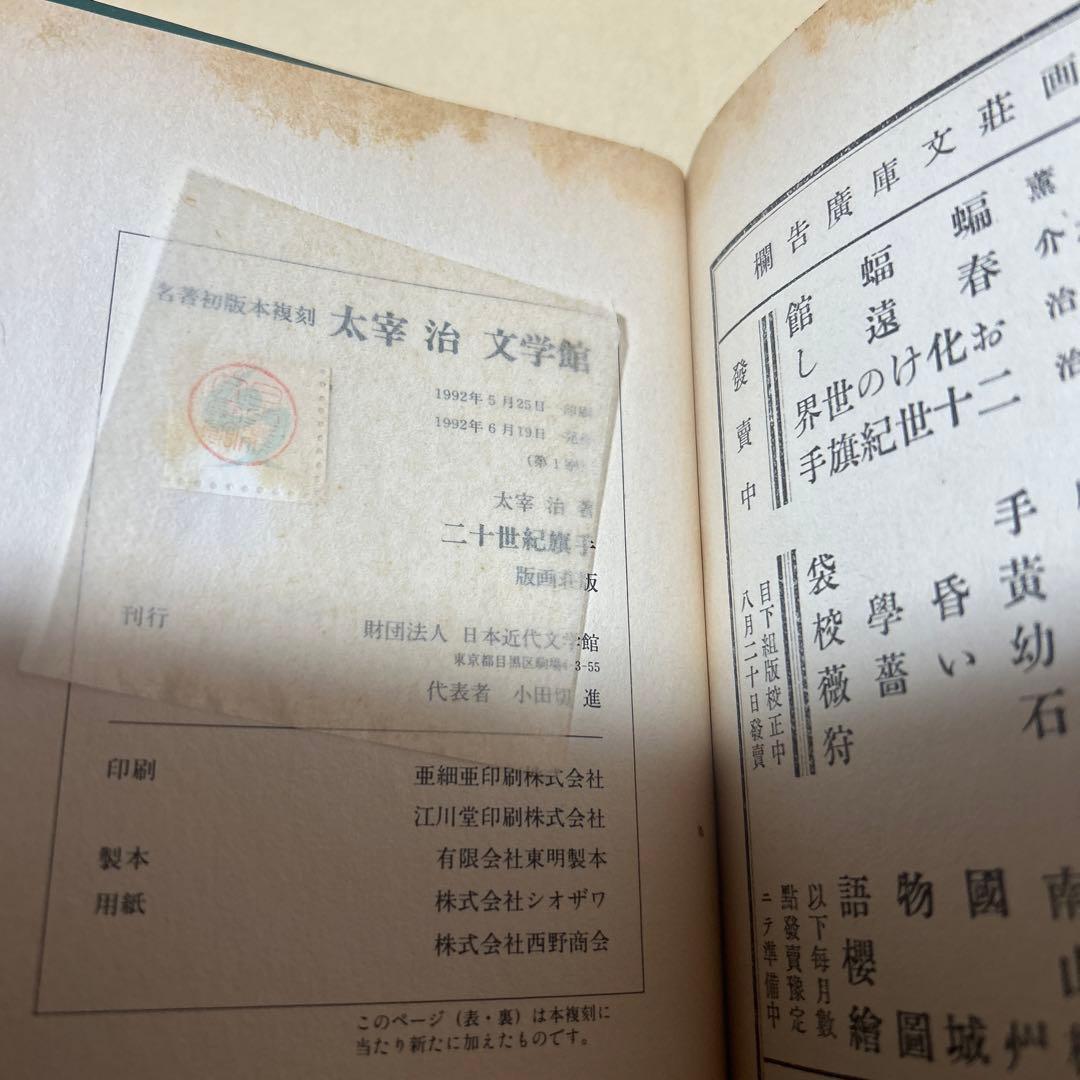 名著初版本複刻 太宰 治 文学館
1992年5月25日 印刷
1992年6月19日 発行
(第1刷)
太宰 治 著
二十世紀旗手
版画荘版
刊行 財団法人 日本近代文学館
東京都目黒区駒場4-3-55
代表者 小田切 進
印刷 亜細亜印刷株式会社
江川堂印刷株式会社
製本 有限会社東明製本
用紙 株式会社シオザワ
株式会社西野商会
このページ(表・裏)は本複刻に
当たり新たに加えたものです。
画莊文庫廣告欄
發賣中
薫 蝙蝠館
介 春遠し
治 お化けの世界
治 二十世紀旗手
目下組版校正中
八月二十日發賣
手袋
黄昏學校
幼い薔薇
石狩
以下每月數
點發賣豫定
ニテ準備中
南國物語
山櫻
州城圖繪